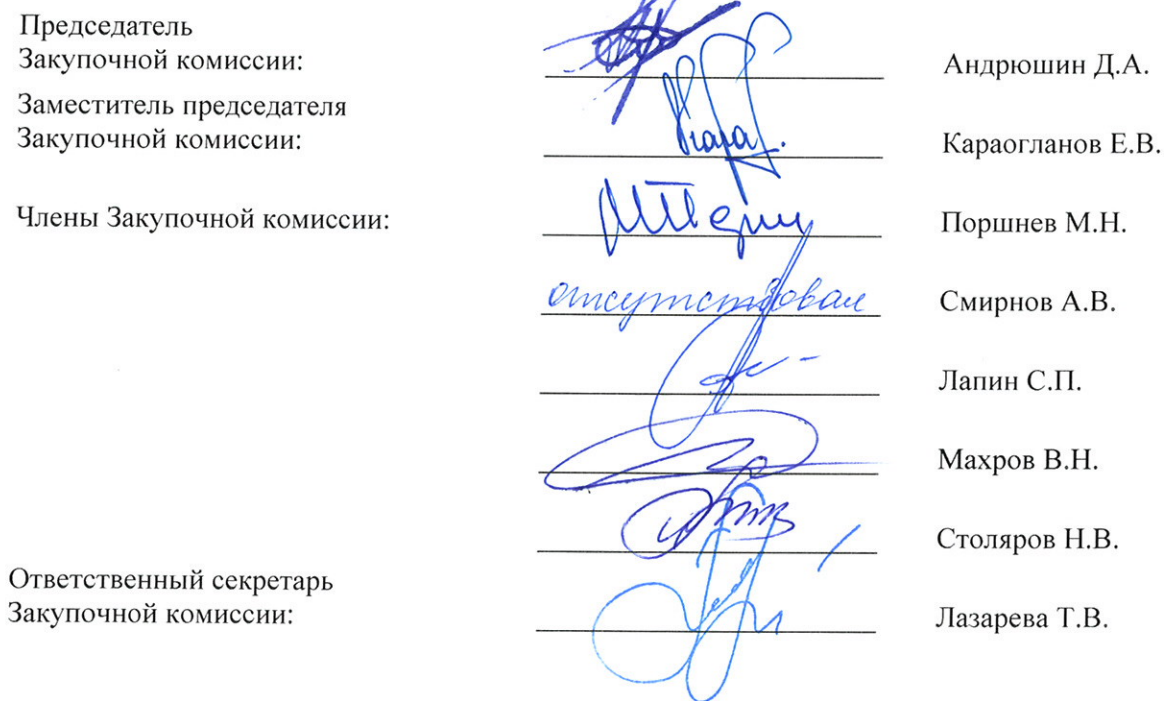 Председатель
Закупочной комиссии:
Андрюшин Д.А.
Заместитель председателя
Закупочной комиссии:
Караогланов Е.В.
Члены Закупочной комиссии:
Поршнев М.Н.
отсутствовал Смирнов А.В.
Лапин С.П.
Махров В.Н.
Столяров Н.В.
Ответственный секретарь
Закупочной комиссии:
Лазарева Т.В.